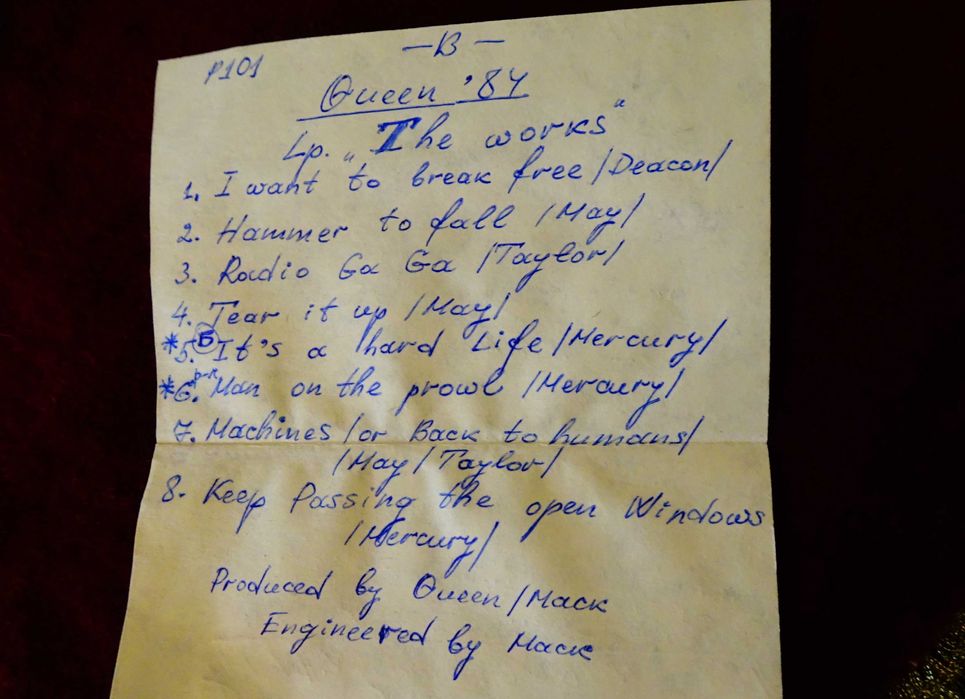 P101
— B —
Queen '84
Lp. „The works"
1. I want to break free /Deacon/
2. Hammer to fall /May/
3. Radio Ga Ga /Taylor/
4. Tear it up /May/
* 5. Б It's a hard Life /Mercury/
* 6. р-н Man on the prowl /Mercury/
7. Machines /or Back to humans/
/May/Taylor/
8. Keep Passing the open Windows
/Mercury/
Produced by Queen/Mack
Engineered by Mack